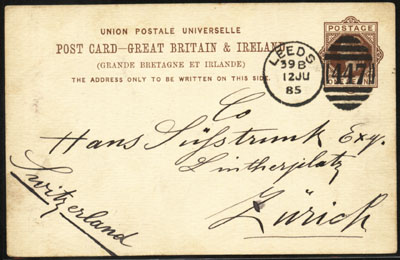 UNION POSTALE UNIVERSELLE
POST CARD—GREAT BRITAIN & IRELAND
(GRANDE BRETAGNE ET IRLANDE)
THE ADDRESS ONLY TO BE WRITTEN ON THIS SIDE.
POSTAGE
LEEDS
39B
12 JU
85
447
Co
Hans Süsstrunk Esq.
Lintherplatz
Zürich
Switzerland